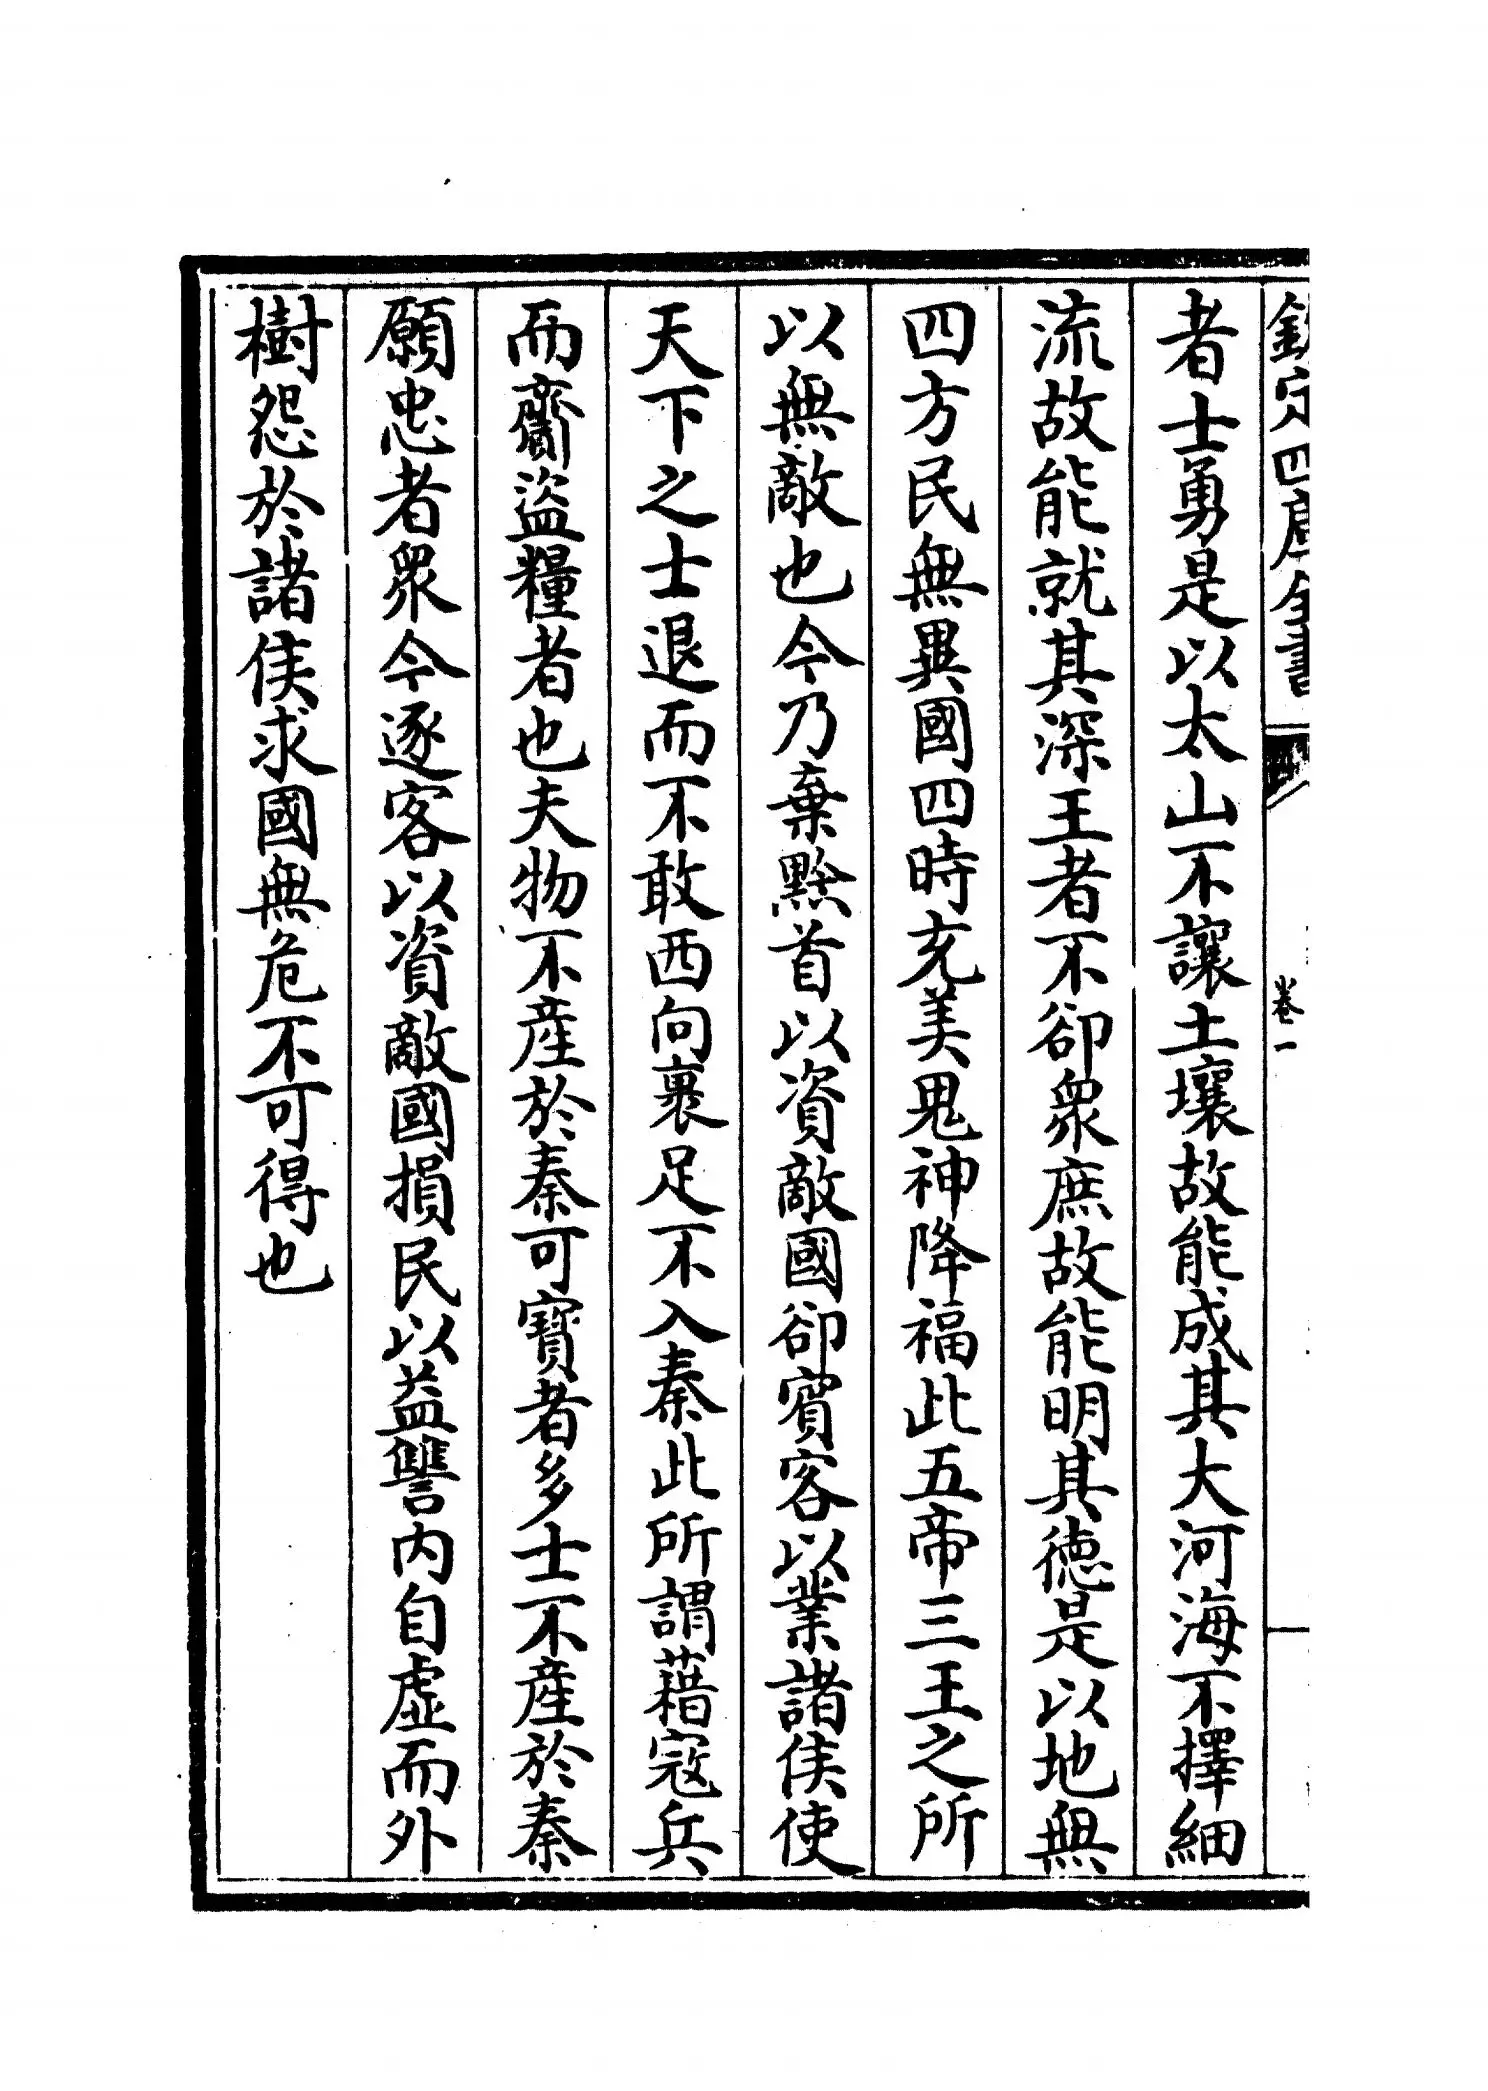 欽定四庫全書
卷一
者士勇是以太山不讓土壤故能成其大河海不擇細
流故能就其深王者不卻衆庶故能明其德是以地無
四方民無異國四時充美鬼神降福此五帝三王之所
以無敵也今乃棄黔首以資敵國卻賓客以業諸侯使
天下之士退而不敢西向裹足不入秦此所謂藉寇兵
而齎盜糧者也夫物不產於秦可寶者多士不產於秦
願忠者衆今逐客以資敵國損民以益讐内自虛而外
樹怨於諸侯求國無危不可得也